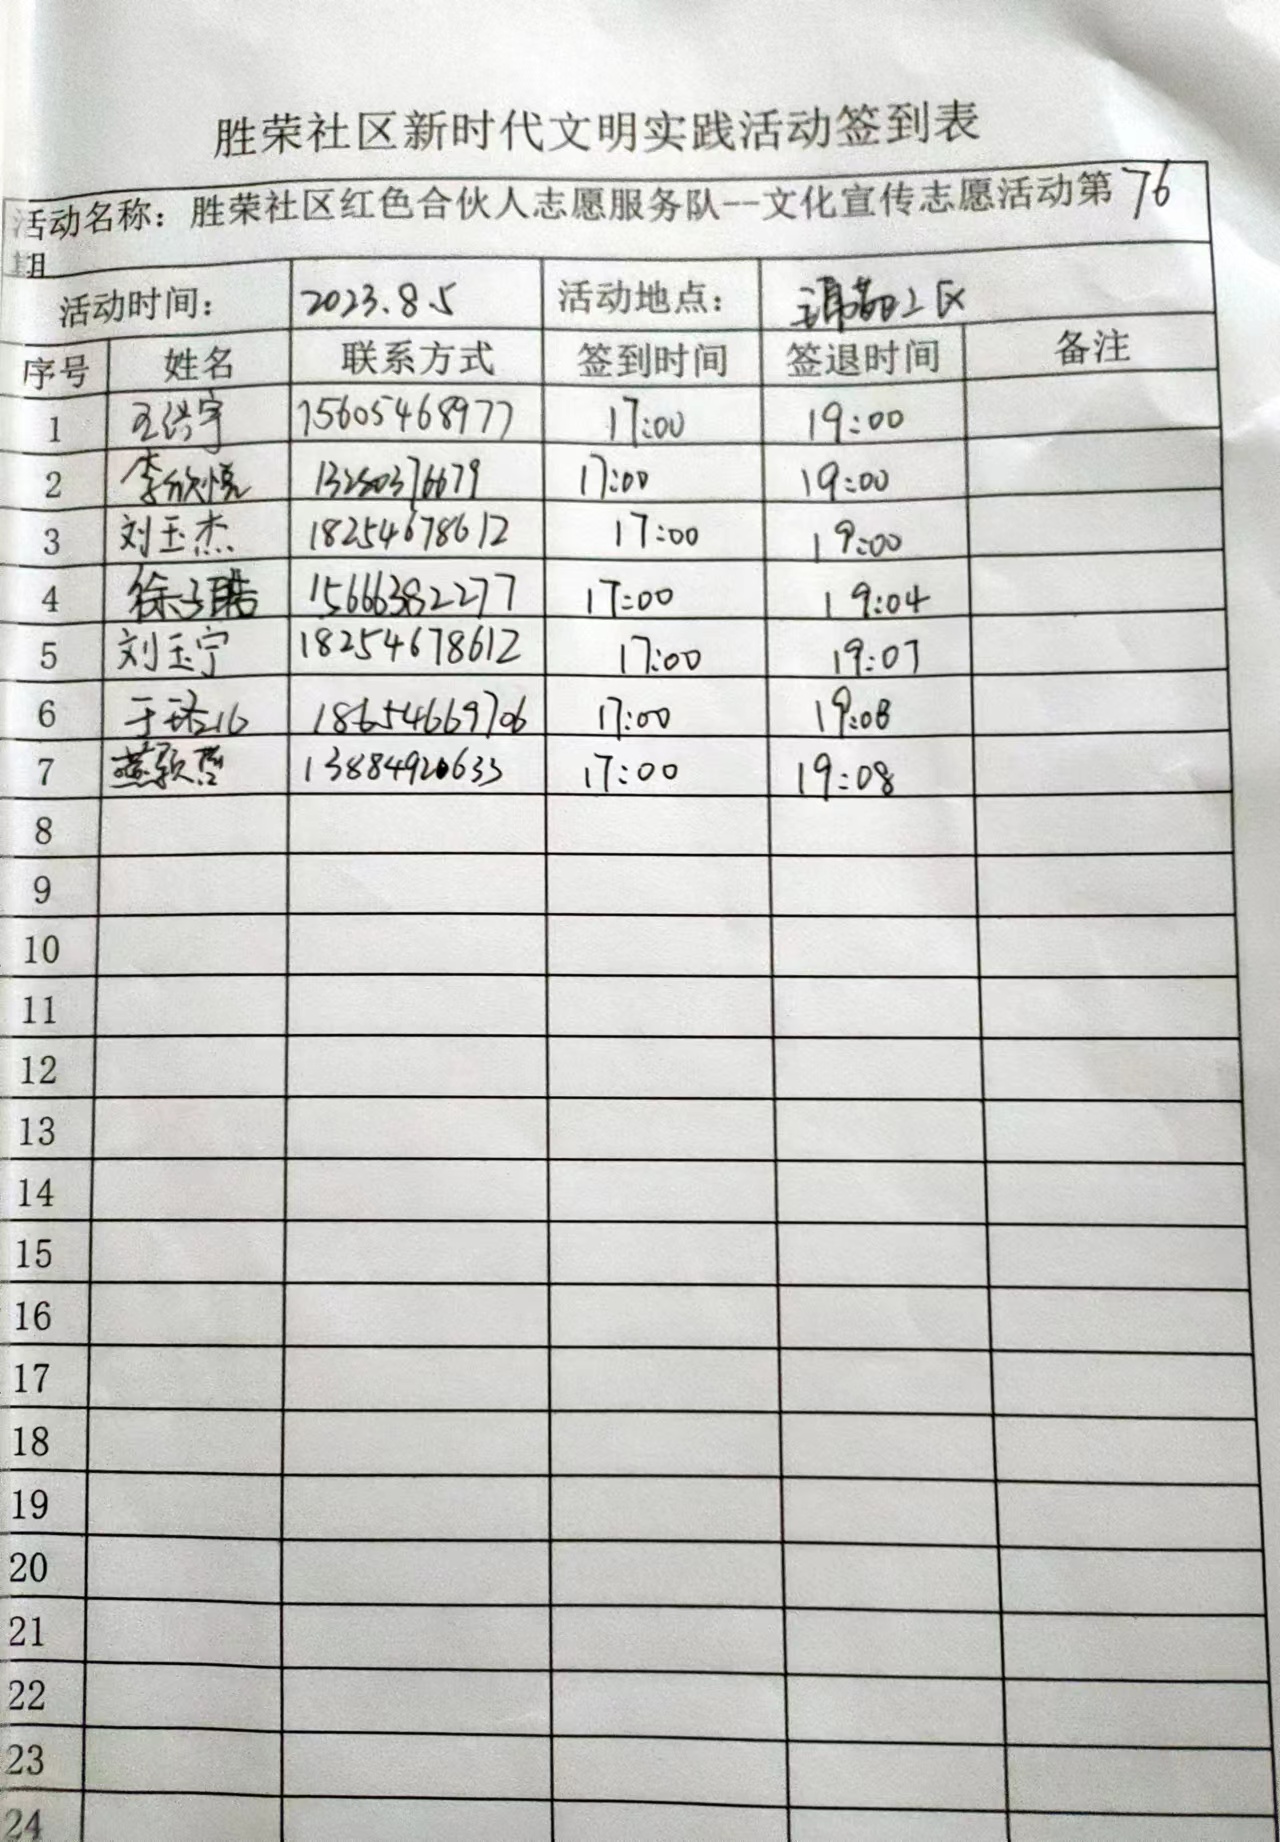 胜荣社区新时代文明实践活动签到表
活动名称：胜荣社区红色合伙人志愿服务队--文化宣传志愿活动第76
期
活动时间： 2023.8.5 活动地点： 区
序号 姓名 联系方式 签到时间 签退时间 备注
1 王浩宇 15605468977 17:00 19:00
2 李欣悦 17:00 19:00
3 刘玉杰 18254678612 17:00 19:00
4 徐子皓 15666382277 17:00 19:04
5 刘玉宁 18254678612 17:00 19:07
6 于 18654669706 17:00 19:08
7 燕 13884920633 17:00 19:08
8
9
10
11
12
13
14
15
16
17
18
19
20
21
22
23
24